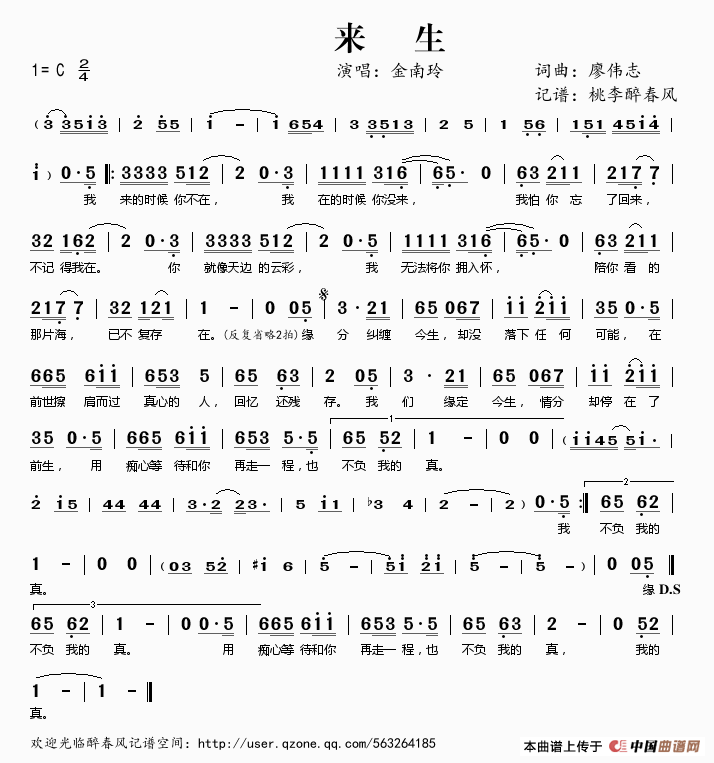 来 生
1= C 2/4 演唱：金南玲 词曲：廖伟志
记谱：桃李醉春风
( 3 3513 | 2 55 | 1 - | 1 654 | 3 3513 | 2 5 | 1 56 | 151 4514 |
1 ) 0·5 |: 3333 512 | 2 0·3 | 1111 316 | 65· 0 | 63 211 | 2177 7 |
我 来的时候 你不在， 我 在的时候 你没来， 我怕 你 忘 了回来，
32 162 | 2 0·3 | 3333 512 | 2 0·5 | 1111 316 | 65· 0 | 63 211 |
不记 得我在。 你 就像天边 的云彩， 我 无法将你 拥入怀， 陪你 看 的
2177 | 32 121 | 1 - | 0 05 | 3·21 | 65 067 | 11 211 | 35 0·5 |
那片海， 已不 复存 在。(反复省略2拍)缘 分 纠缠 今生，却没 落下 任 何 可能， 在
665 611 | 653 5 | 65 63 | 2 05 | 3·21 | 65 067 | 11 211 |
前世擦 肩而过 真心的 人， 回忆 还残 存。我 们 缘定 今生，情分 却停 在 了
1
35 0·5 | 665 611 | 653 5·5 | 65 52 | 1 - | 0 0 | (1145 51· |
前生， 用 痴心等 待和你 再走一 程，也 不负 我的 真。
2
2 15 | 44 44 | 3·2 23· | 5 11 | b3 4 | 2 - | 2 ) | 0·5 :| 65 62 |
我 不负 我的
1 - | 0 0 | (03 52 | #1 6 | 5 51 | 521 21 | 5 - | 5 - ) | 0 0 | 0 05 ||
真。 缘 D.S
3
65 62 | 1 - | 0 0·5 | 665 611 | 653 5·5 | 65 63 | 1 - | 0 62 |
不负 我的 真。 用 痴心等 待和你 再走一 程，也 不负 我的 真， 我的
1 - | 1 - ||
真。
欢迎光临醉春风记谱空间：http://user.qzone.qq.com/563264185
本曲谱上传于 中国曲谱网